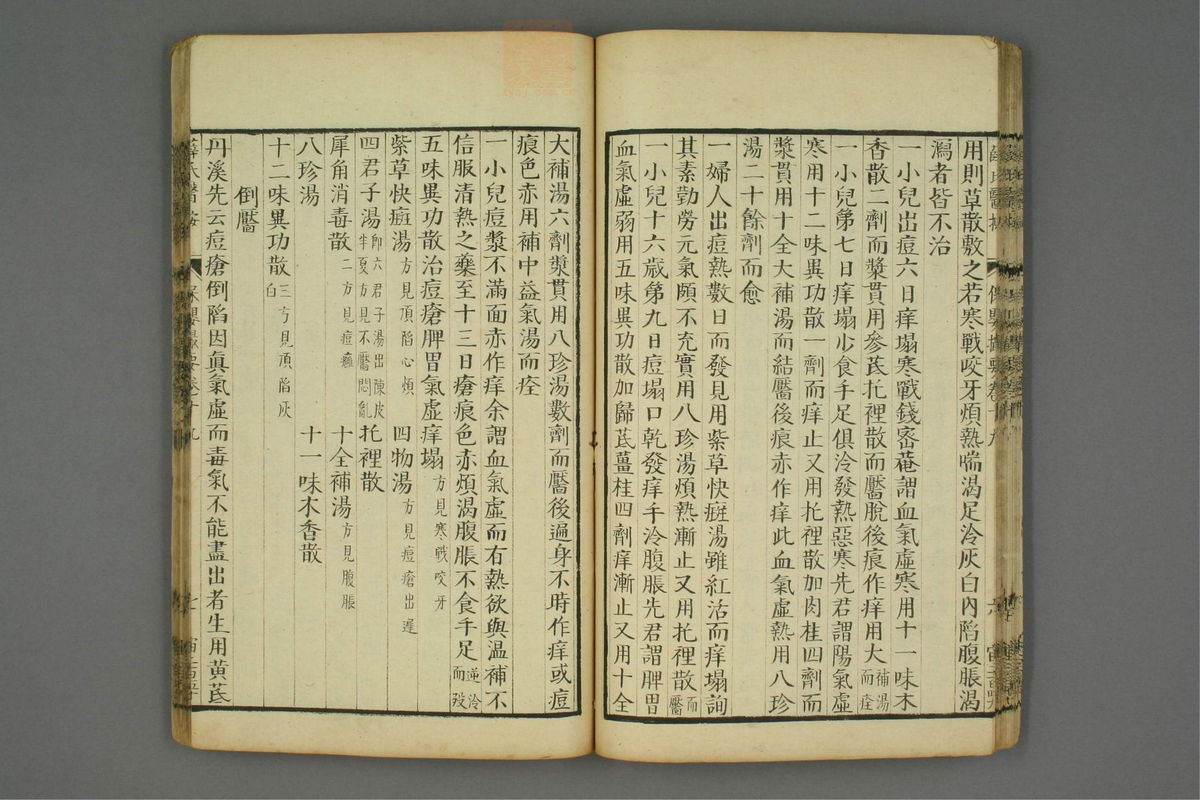 用則草散敷之若寒戰咬牙煩熱喘渴足冷灰白內陷腹脹渴
瀉者皆不治
一小兒出痘六日痒塌寒戰錢密菴謂血氣虛寒用十一味木
香散二劑而漿貫用參芪托裡散而靨脫後痕作痒用大補湯而痊
一小兒第七日痒塌少食手足俱冷發熱惡寒先君謂陽氣虛
寒用十二味異功散一劑而痒止又用托裡散加肉桂四劑而
漿貫用十全大補湯而結靨後痕赤作痒此血氣虛熱用八珍
湯二十餘劑而愈
一婦人出痘熱數日而發見用紫草快癍湯雖紅活而痒塌詢
其素勤勞元氣頗不充實用八珍湯煩熱漸止又用托裡散而靨
一小兒十六歲第九日痘塌口乾發痒手冷腹脹先君謂脾胃
血氣虛弱用五味異功散加歸芪薑桂四劑痒漸止又用十全
大補湯六劑漿貫用八珍湯數劑而靨後遍身不時作痒或痘
痕色赤用補中益氣湯而痊
一小兒痘漿不滿面赤作痒余謂血氣虛而有熱欲與温補不
信服清熱之藥至十三日瘡痕色赤煩渴腹脹不食手足逆冷而歿
五味異功散治痘瘡脾胃氣虛痒塌方見寒戰咬牙
紫草快癍湯方見頂陷心煩 四物湯方見痘瘡出遲
四君子湯卽六君子湯出陳皮半夏方見不靨悶亂 托裡散
犀角消毒散二方見痘癰 十全補湯方見腹脹
八珍湯 十一味木香散
十二味異功散三方見頂陷灰白
倒靨
丹溪先云痘瘡倒陷因眞氣虛而毒氣不能盡出者生用黄芪